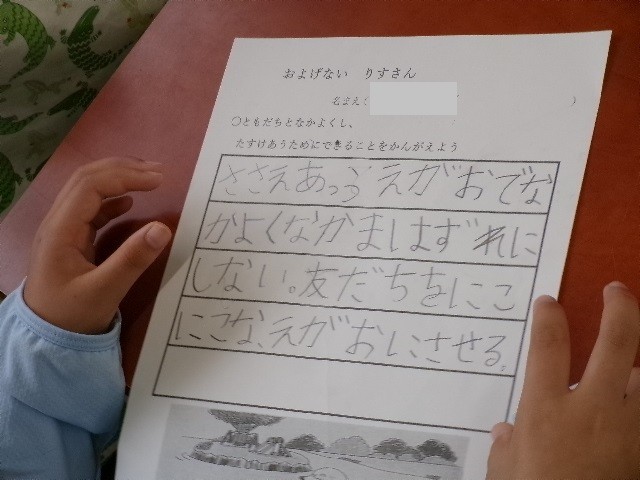 およげない りすさん
名まえ( )
〇ともだちとなかよくし、
たすけあうためにできることをかんがえよう
ささえあっう えがおでな
かよくなかまはずれに
しない。友だちをにこ
にこな、えがおにさせる。